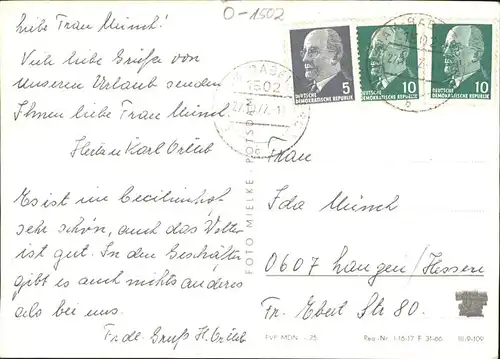 O-1502
Liebe Frau Münch!
Viele liebe Grüße von
unseren Urlaub senden
Ihnen liebe Frau Münch
Karl Ortub
Es ist im Cecilienhof
sehr schön, auch das Wetter
ist gut. In den Geschäften
gibt es auch nichts anderes
als bei uns.
Frdl. Gruß H. Ortub
FOTO MIELKE · POTSDAM
5
DEUTSCHE
DEMOKRATISCHE REPUBLIK
10
DEUTSCHE
DEMOKRATISCHE REPUBLIK
10
DEUTSCHE
DEMOKRATISCHE REPUBLIK
1502
Frau
Ida Münch
0607 Langen/Hessen
Fr. Ebert Str 80.
EVP MDN -.25
Reg.-Nr. I-16-17 F 31-66
III/9-109